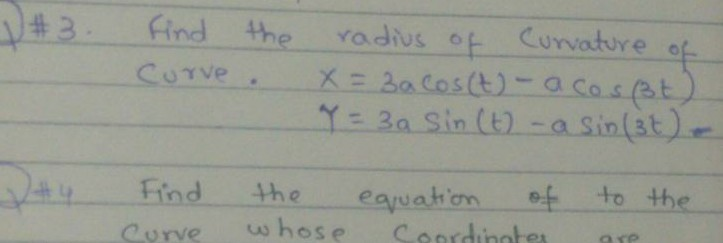 #3. Find the radius of Curvature of
Curve. X = 3a cos(t) - a cos(3t)
Y = 3a Sin(t) - a Sin(3t)
#4 Find the equation of to the
Curve whose Coordinates are